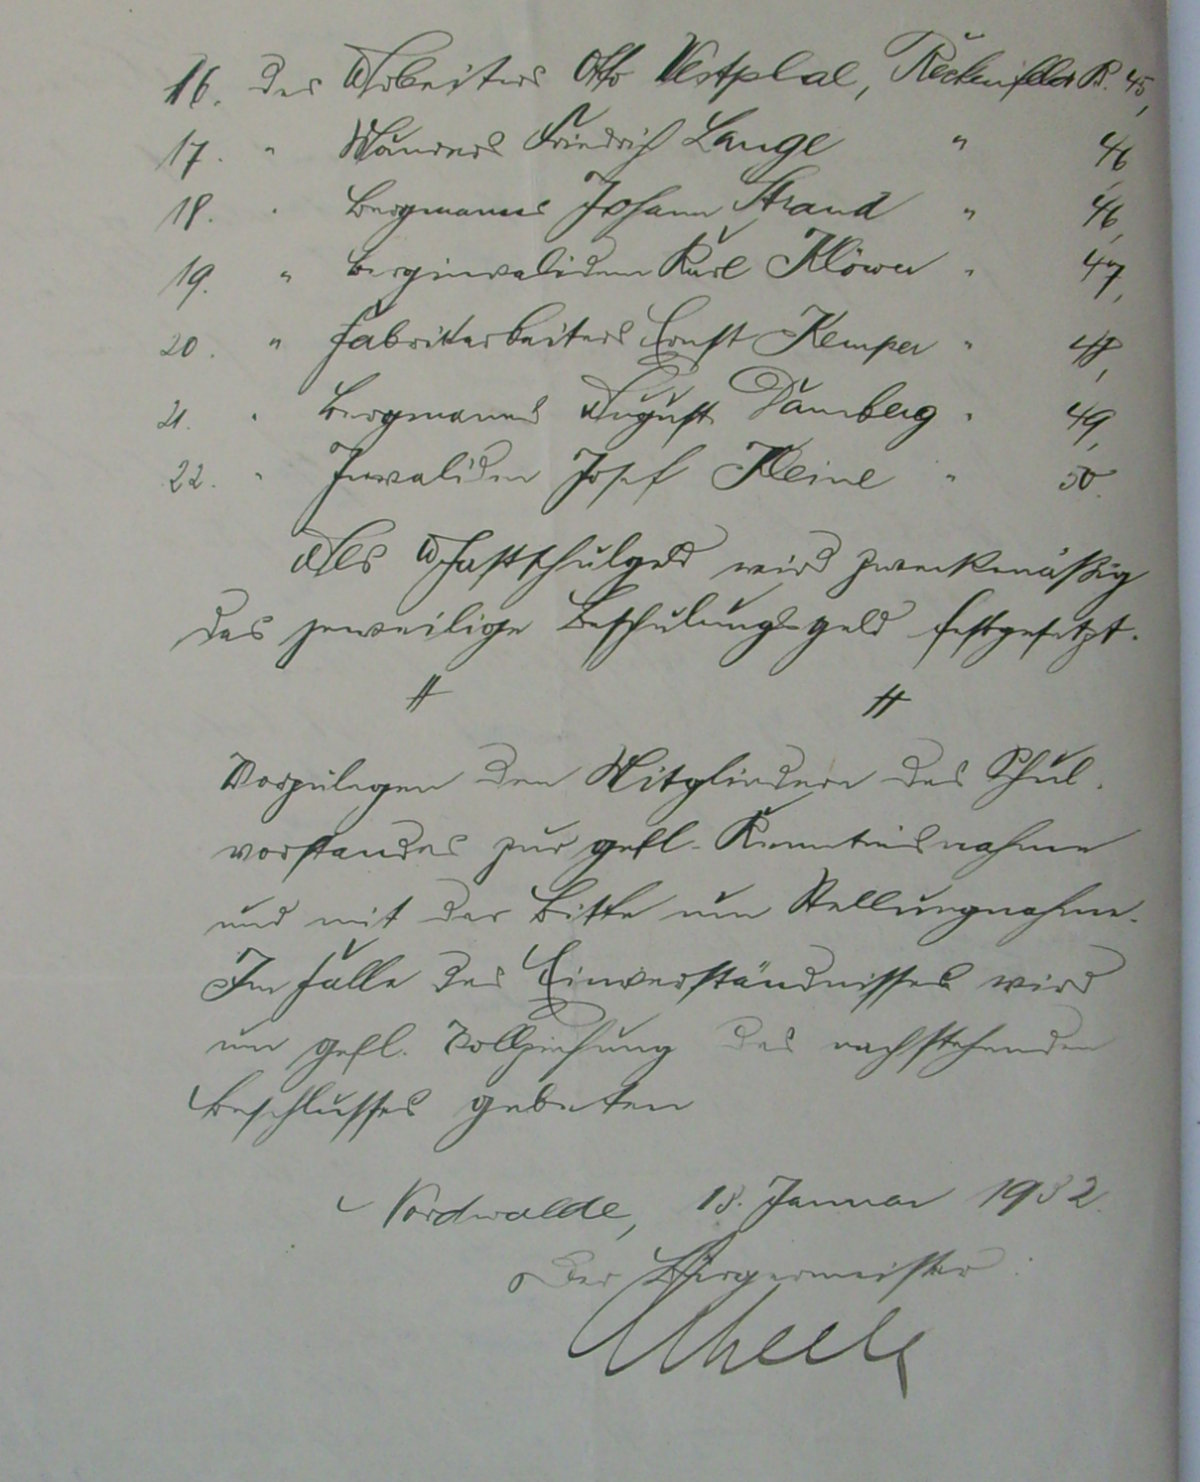 16. des Arbeiters Otto Westphal, Reckenfeld B. 45,
17. " Maurers Friedrich Lange " 46,
18. " Bergmanns Johann Strand " 46,
19. " Berginvaliden Karl Klöwer " 47,
20. " Fabrikarbeiters Ernst Kemper " 48,
21. " Bergmanns August Damberg " 49,
22. " Invaliden Josef Kleine " 50.
Als Gastschulgeld wird zweckmäßig
das jeweilige Beschulungsgeld festgesetzt.
// //
Vorzulegen den Mitgliedern des Schul-
vorstandes zur gefl. Kenntnisnahme
und mit der Bitte um Stellungnahme.
Im Falle des Einverständnisses wird
um gefl. Vollziehung des nachstehenden
Beschlusses gebeten
Nordwalde, 18. Januar 1932.
Der Bürgermeister